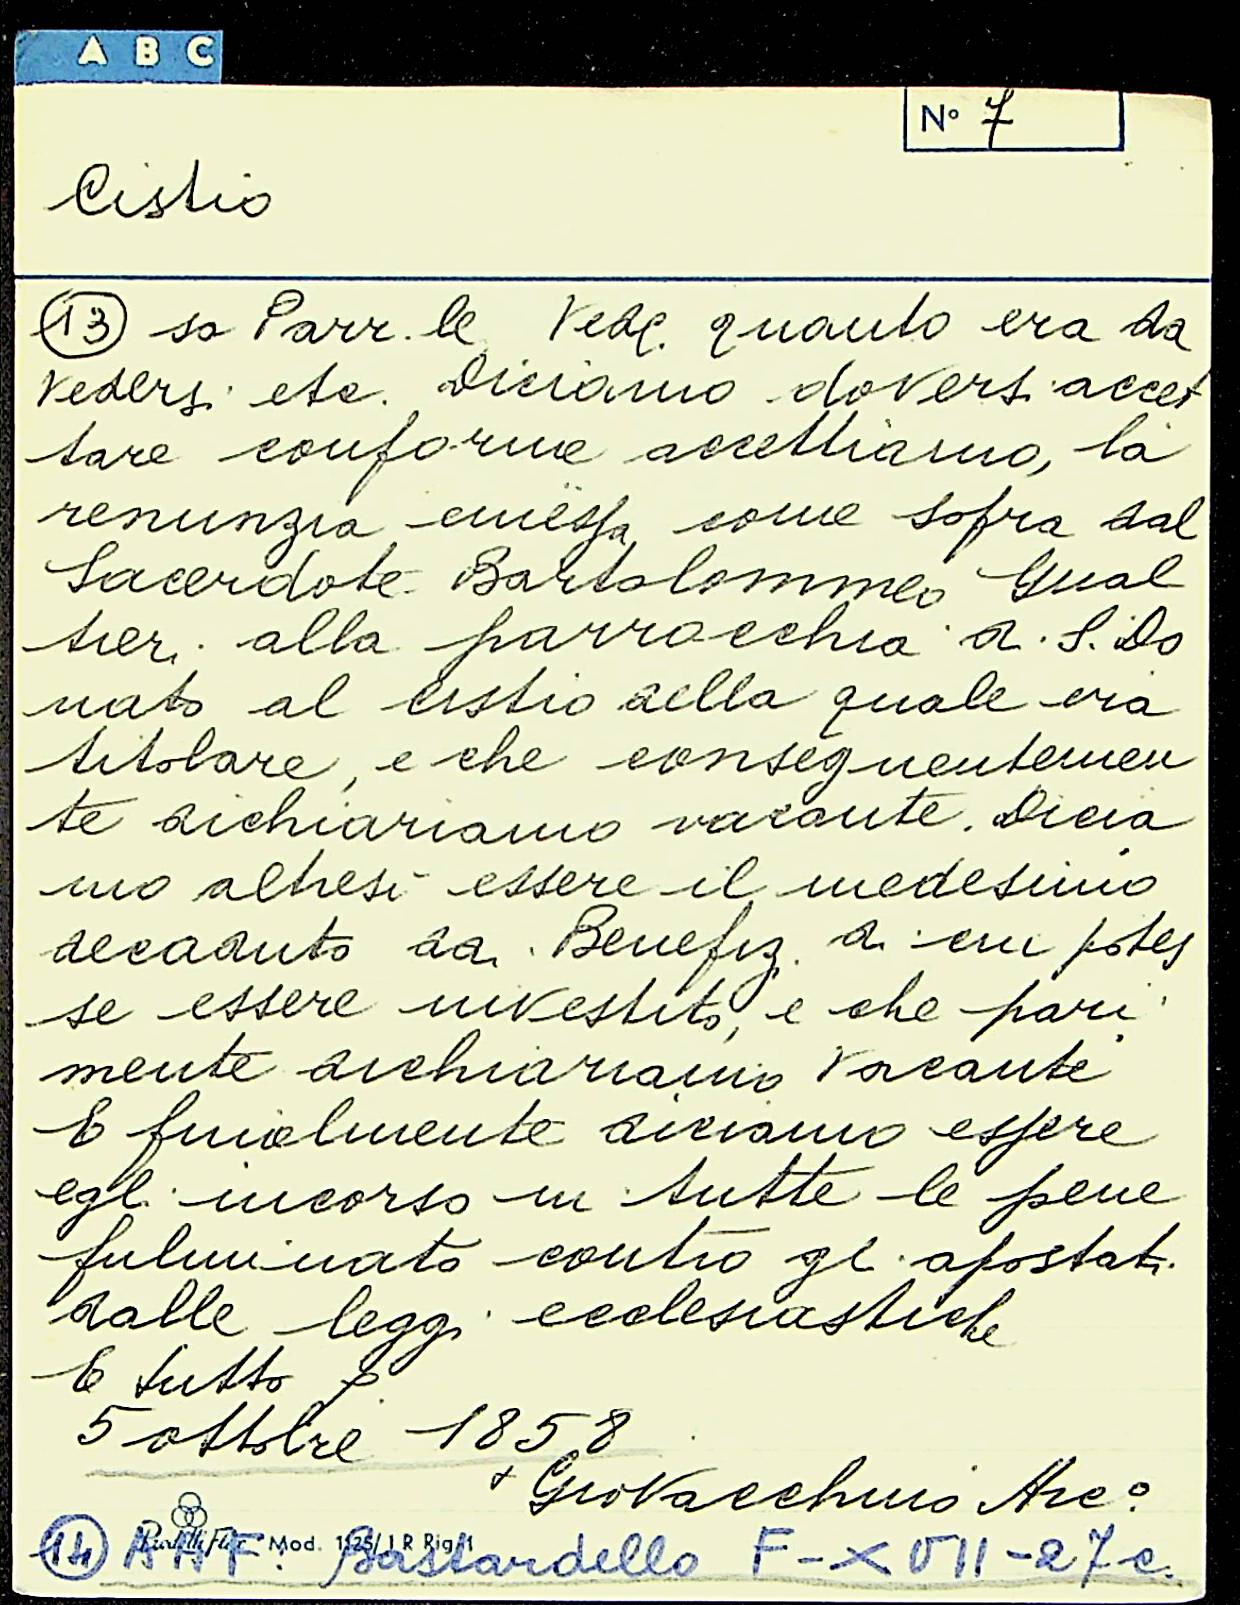 A B C
Nº 7
Cistio
13 so Parr.le Ved. quanto era da
vedersi etc. Diciamo doversi accet
tare conforme accettiamo, la
renunzia emessa come sopra dal
Sacerdote Bartolommeo Gual
tieri alla parrocchia di S. Do
nato al Cistio della quale era
titolare, e che conseguentemen
te dichiariamo vacante. Dicia
mo altresi essere il medesimo
decaduto da Benefizi di cui potes
se essere investito, e che pari
mente dichiariamo vacante
E finalmente diciamo essere
egli incorso in tutte le pene
fulminato contro gli apostati
dalle leggi ecclesiastiche
E tutto
5 ottobre 1858
+ Giovacchino Arcº
Mod. 1125/1 R Rig/1
14 A A F. Bastardello F-XVII-27 c.